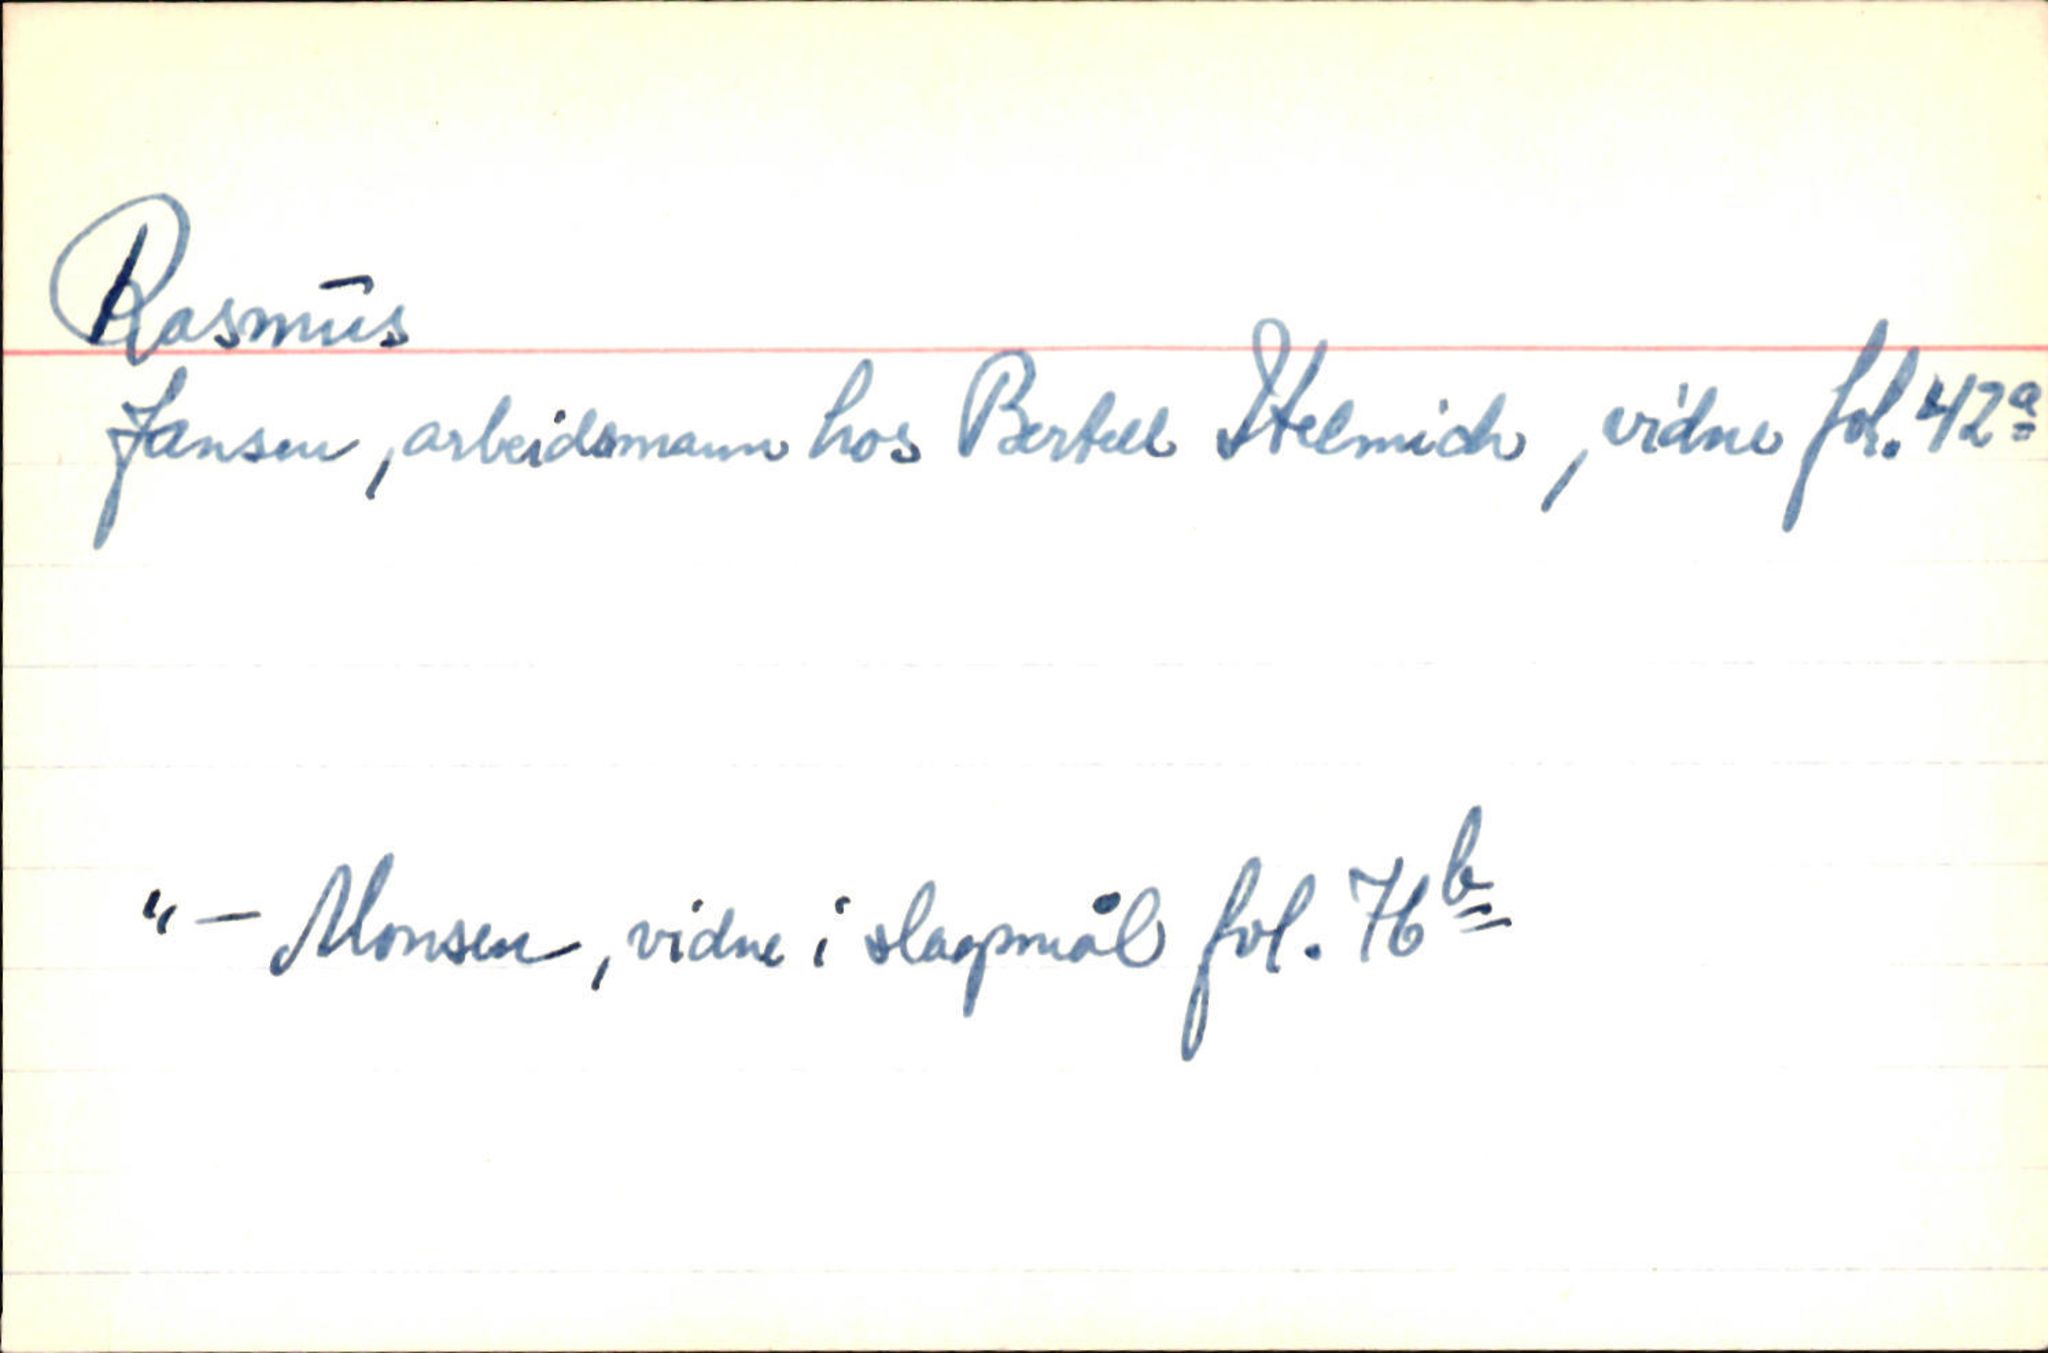 Rasmus
Jansen, arbeidsmann hos Bertell Helmich, vidne fol. 42a
"— Monsen, vidne i slagsmål fol. 76b